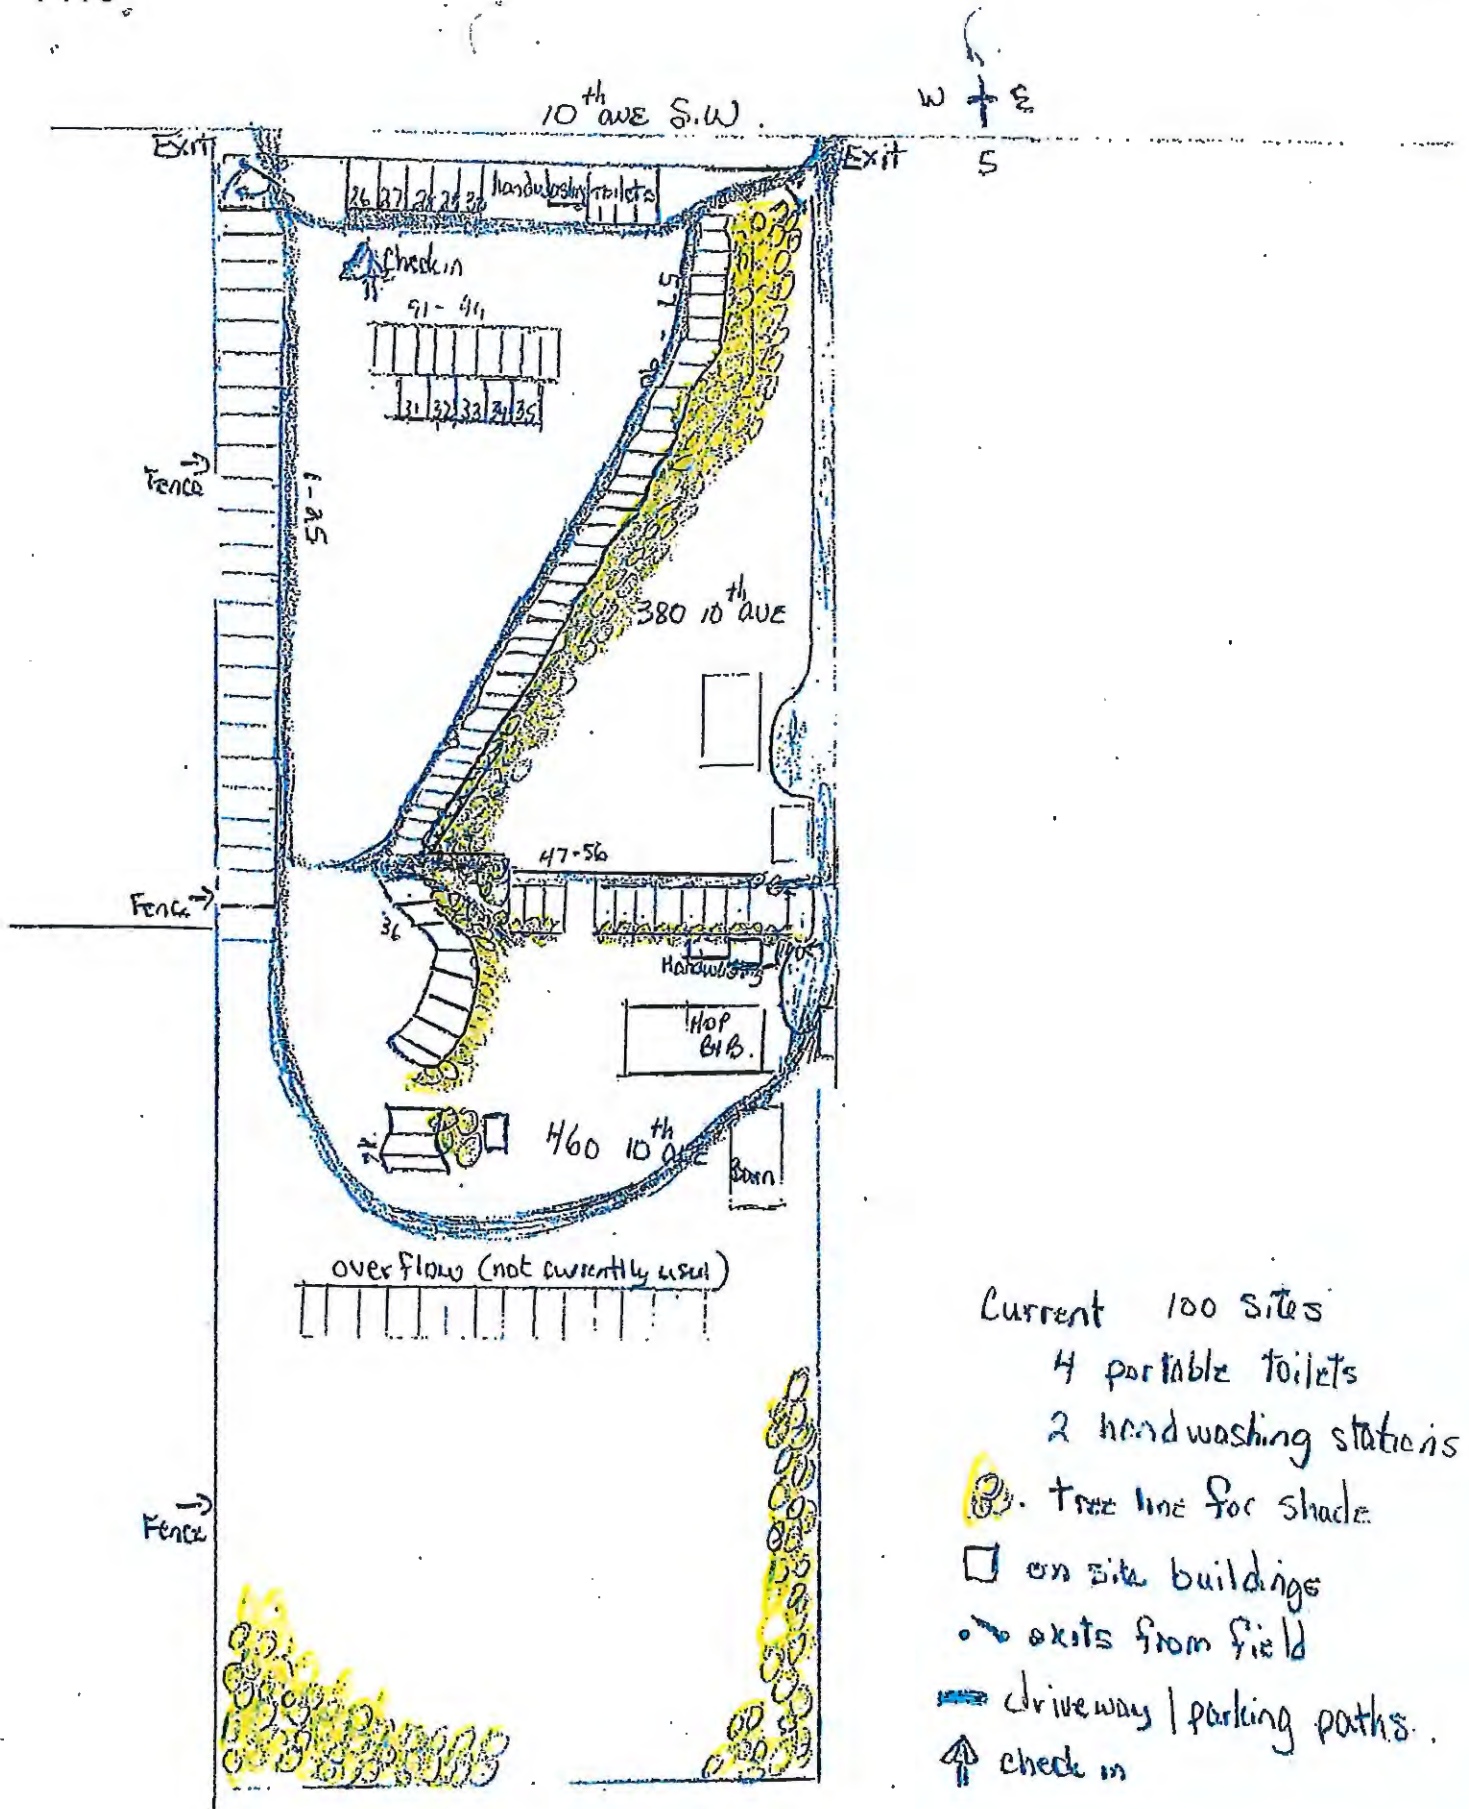 10th AVE S.W.
W E
S
Exit
Exit
26 27 28 29 30 handwashing toilets
Check in
91-99
31 32 33 34 35
57 - 90
Fence
1-25
380 10th AVE
47-56
Fence
36
Handwashing
HOP
BLB.
460 10th AVE
Barn
overflow (not currently used)
Current 100 sites
4 portable toilets
2 handwashing stations
Fence
tree line for shade
on site buildings
exits from field
driveway / parking paths.
check in